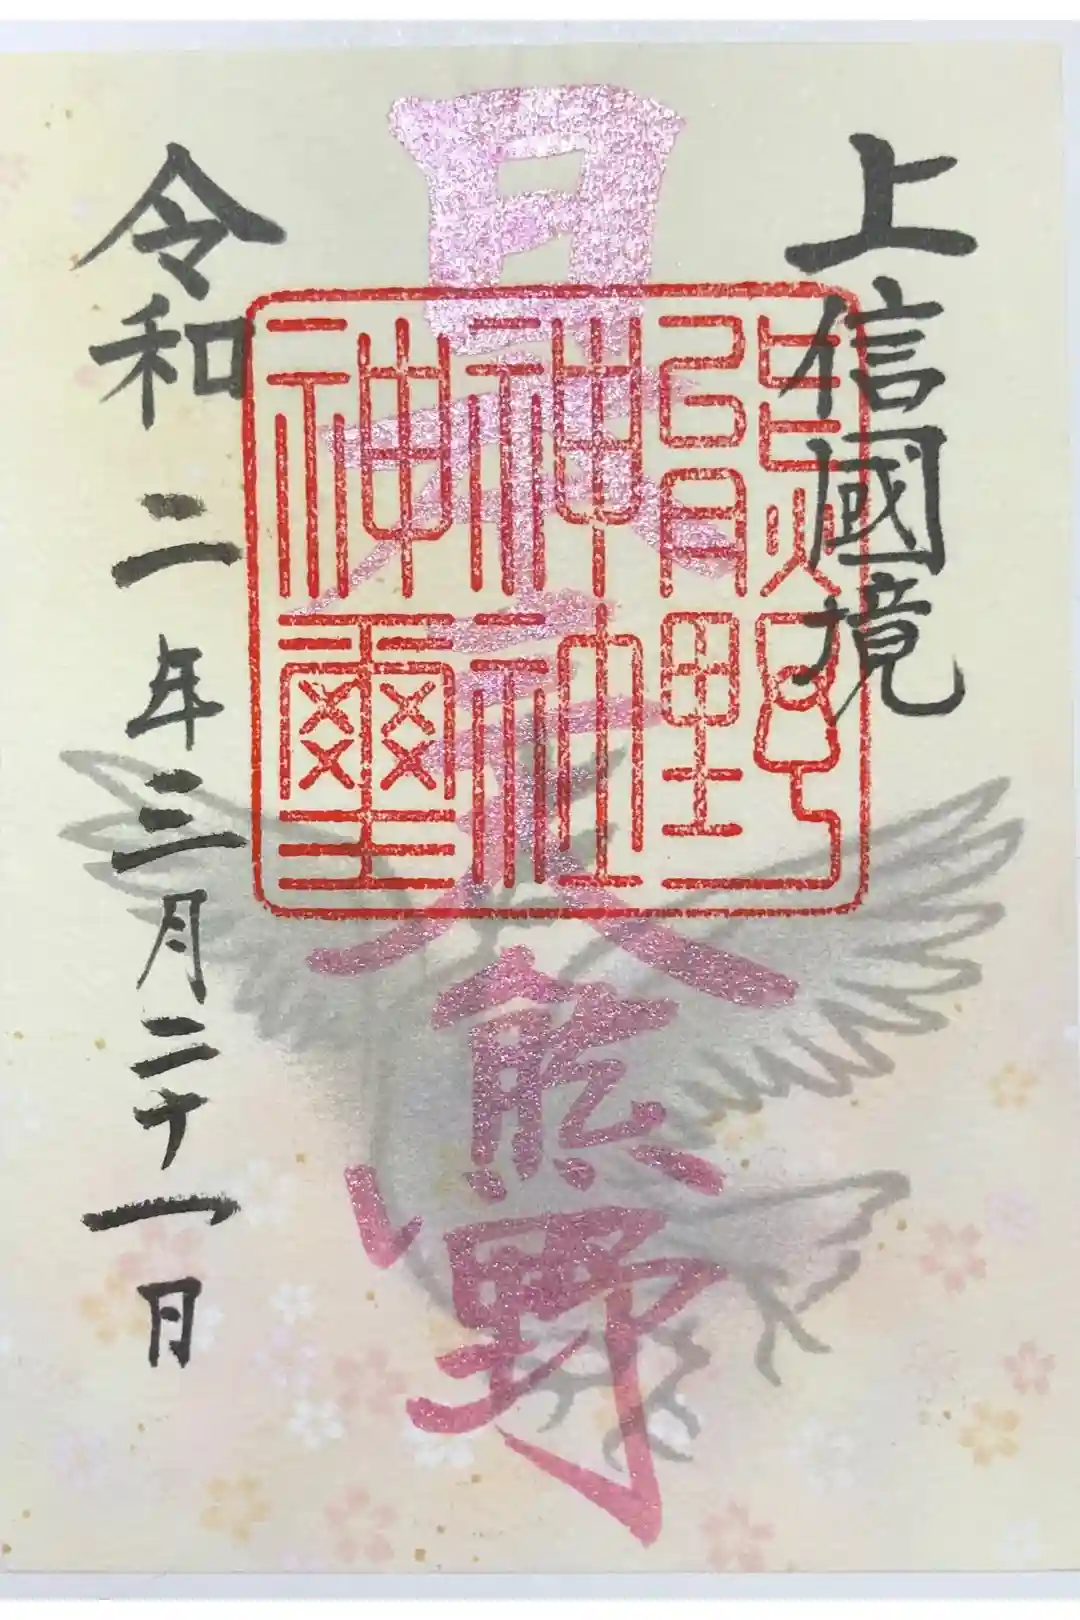 上信國境
日本三大熊野
熊野
神社
神璽
令和二年三月二十一日